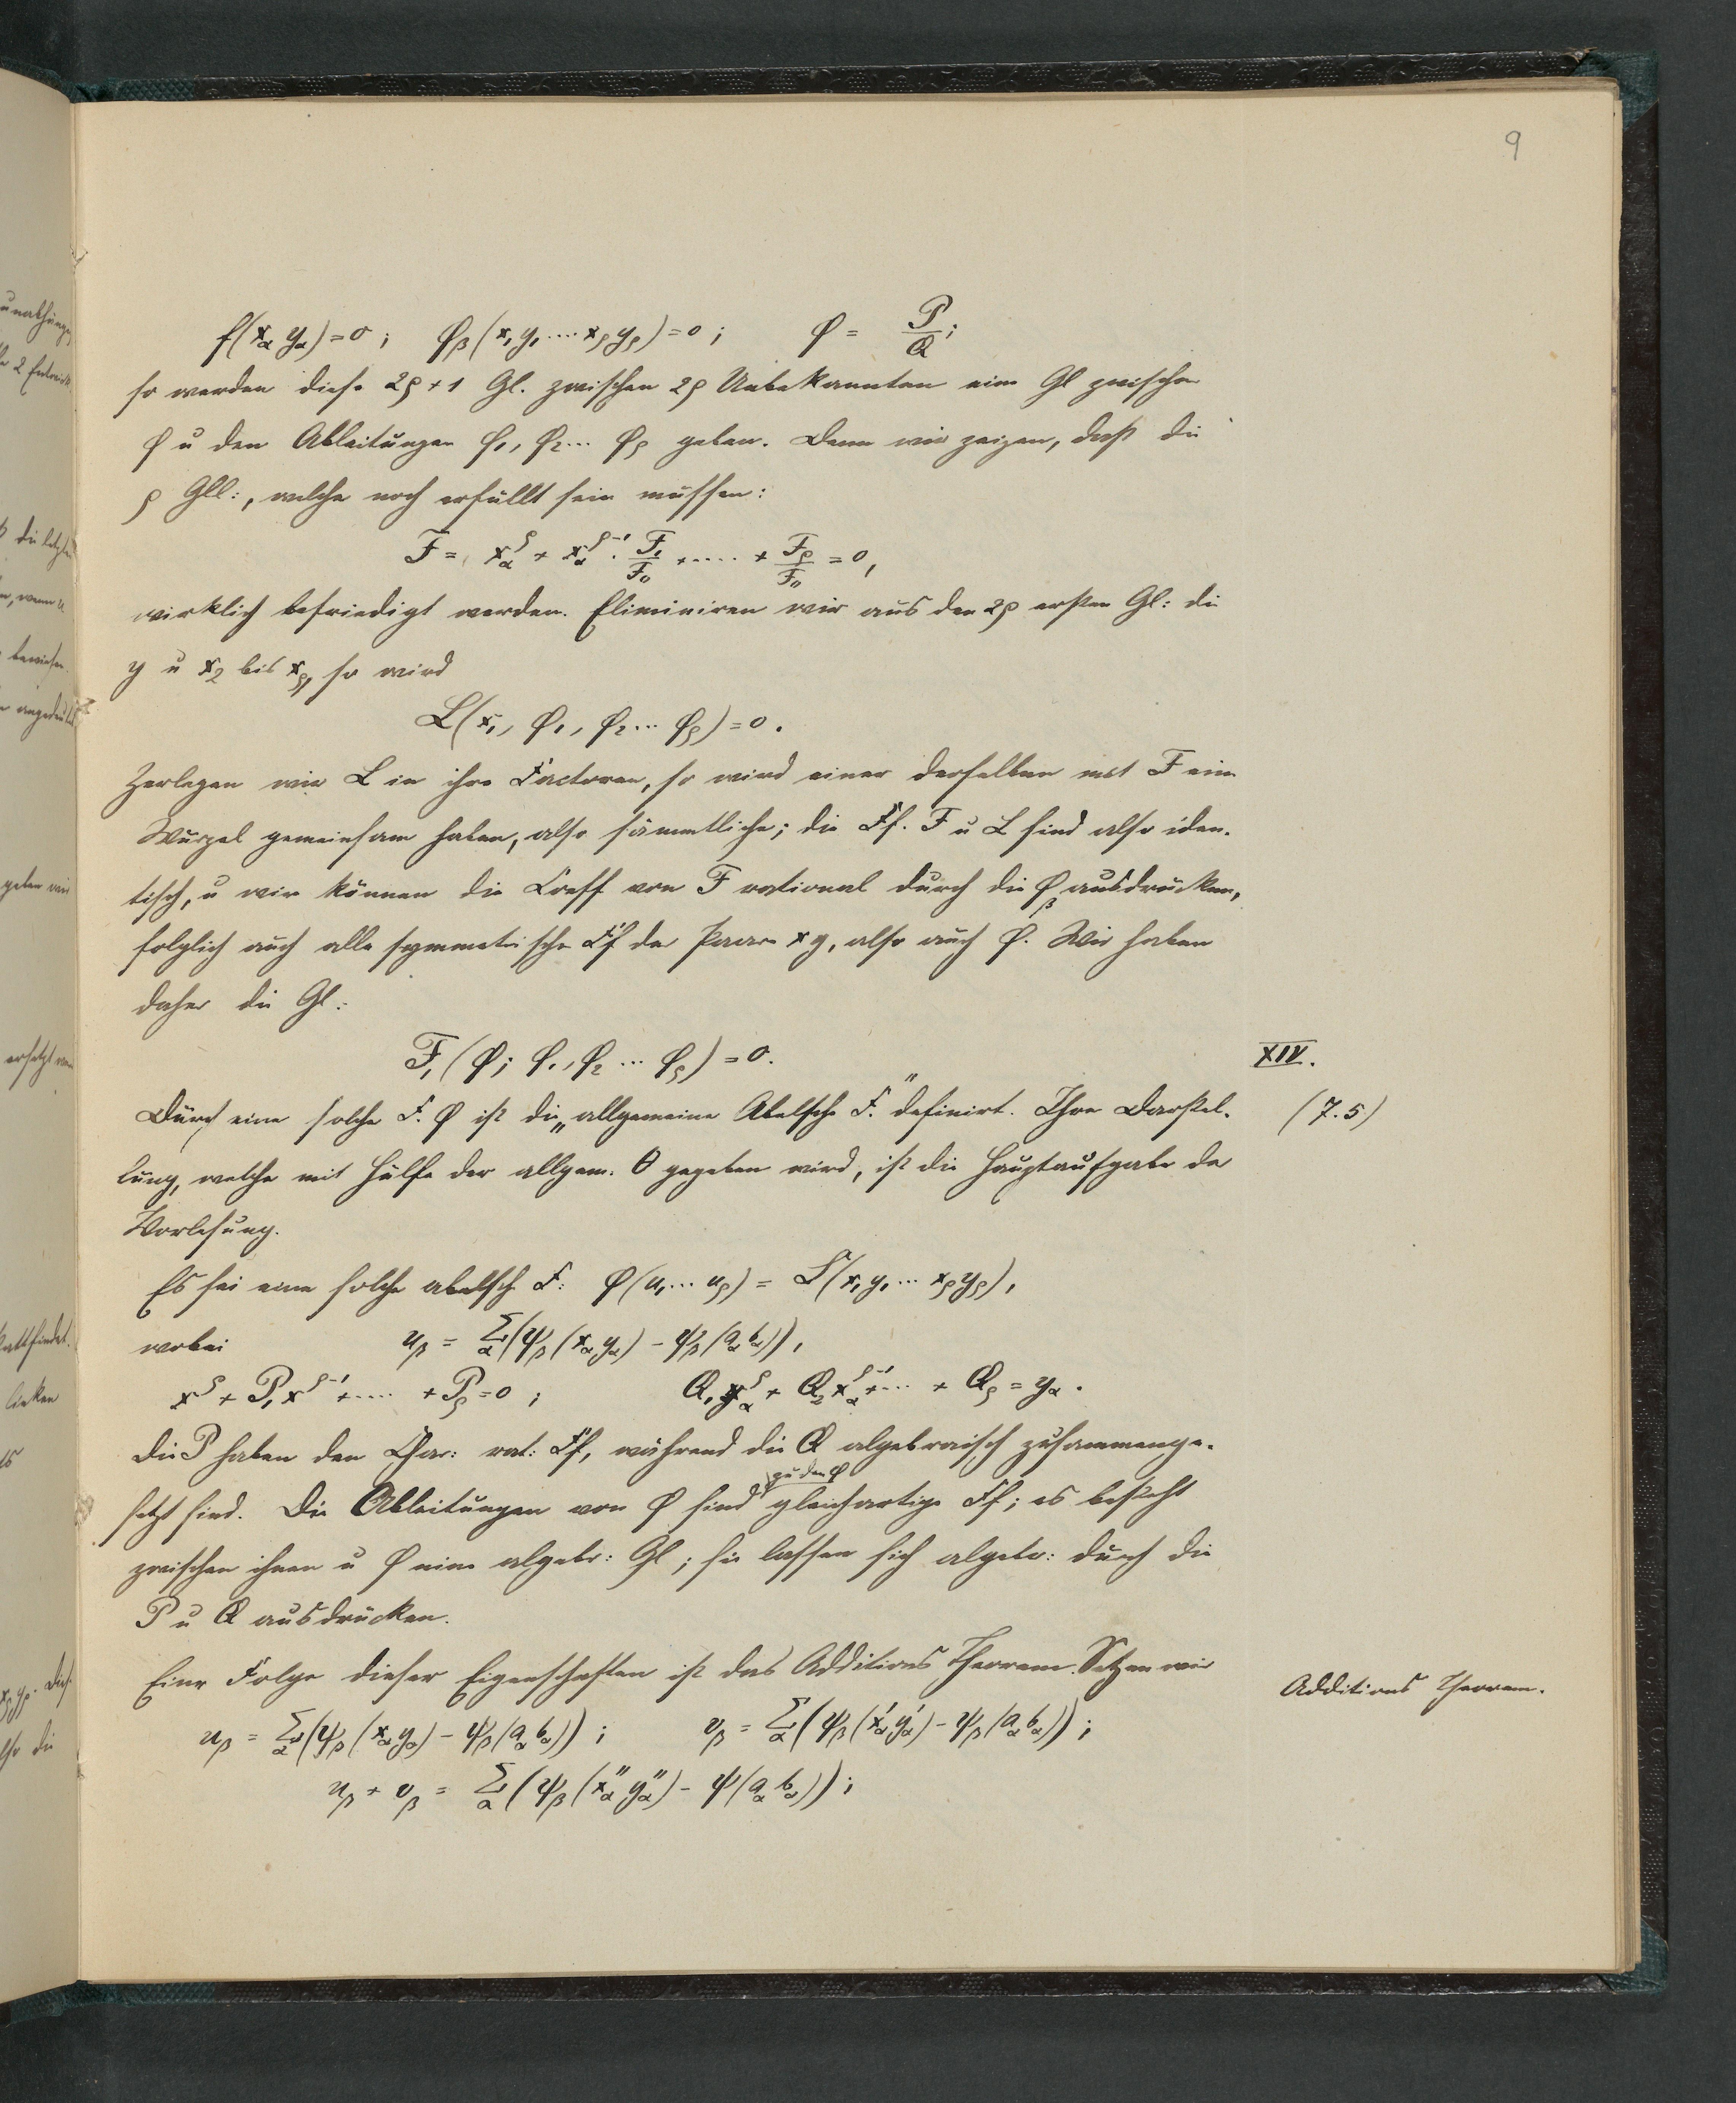 9
f(x_α y_α) = 0 ; φ_β (x_1 y_1 ... x_ρ y_ρ) = 0 ; φ = P/Q ;
so werden diese 2ρ+1 Gl. zwischen 2ρ Unbekannten eine Gl zwischen
φ u den Ableitungen φ_1, φ_2 ... φ_ρ geben. Denn wir zeigen, daß die
ρ Gll:, welche noch erfüllt sein müssen:
F = x_α^ρ + x_α^{ρ-1} · F_1/F_0 + ..... + F_ρ/F_0 = 0,
wirklich befriedigt werden. Eliminiren wir aus den 2ρ ersten Gl: die
y u x_2 bis x_ρ, so wird
L(x_1, φ_1, φ_2 ... φ_ρ) = 0.
Zerlegen wir L in ihre Factoren, so wird einer derselben mit F eine
Wurzel gemeinsam haben, also sämmtliche; die Ff. F u L sind also iden-
tisch, u wir können die Coeff von F rational durch die φ_β ausdrücken,
folglich auch alle symmetrische Ff der Paare x y, also auch φ. Wir haben
daher die Gl:
F_1 (φ; φ_1, φ_2 ... φ_ρ) = 0. XIV.
Durch eine solche F. φ ist die „allgemeine Abelsche F." definirt. Ihre Darstel- (7.5)
lung, welche mit Hülfe der allgem. θ gegeben wird, ist die Hauptaufgabe der
Vorlesung.
Es sei eine solche abelsch F: φ(u_1 ... u_ρ) = S(x_1 y_1 ... x_ρ y_ρ),
wobei u_β = Σ_α (ψ_β (x_α y_α) - ψ_β (a_α b_α)),
x^ρ + P_1 x^{ρ-1} + .... + P_ρ = 0 ; Q_1 x_α^ρ + Q_2 x_α^{ρ-1} + ... + Q_ρ = y_α.
Die P haben den Char: rat: Ff, während die Q algebraisch zusammenge-
setzt sind. Die Ableitungen von φ sind zu den φ gleichartige Ff; es besteht
zwischen ihnen u φ eine algebr: Gl; sie lassen sich algebr: durch die
P u Q ausdrücken.
Eine Folge dieser Eigenschaften ist das Additions Theorem. Setzen wir
Additions Theorem.
u_β = Σ_α (ψ_β (x_α y_α) - ψ_β (a_α b_α)) ; v_β = Σ_α (ψ_β (x'_α y'_α) - ψ_β (a_α b_α)) ;
u_β + v_β = Σ_α (ψ_β (x''_α y''_α) - ψ (a_α b_α)) ;